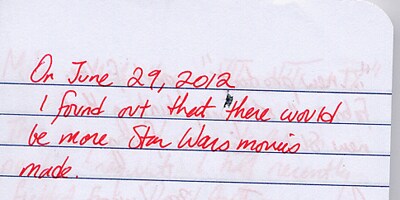 On June 29, 2012
I found out that there would
be more Star Wars movies
made.